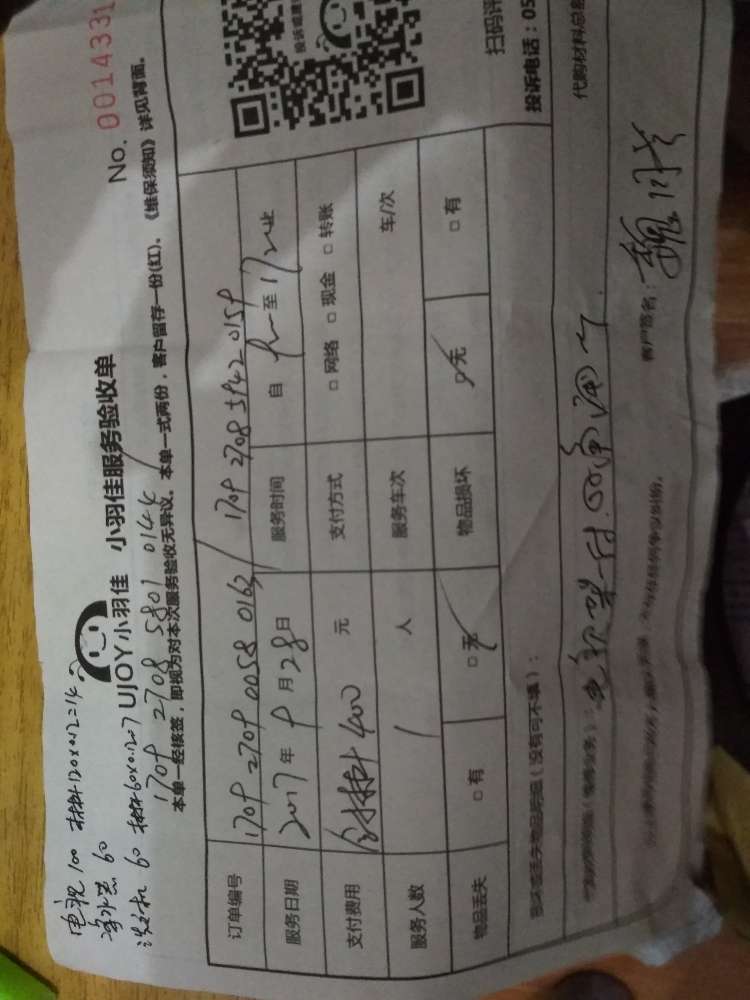 电视 100 材料120×0.12=14
净水器 60
洗衣机 60 材料60×0.12=7
UJOY小羽佳 小羽佳服务验收单
No. 0014331
1709 2708 5801 0144
本单一经核签，即视为对本次服务验收无异议。本单一式两份，客户留存一份(红)。《维保须知》详见背面。
订单编号 1709 2709 0058 0163 / 1709 2708 5942 0159
服务日期 2017年 9月28日 服务时间 自 至 17
支付费用 含材料 400 元 支付方式 □ 网络 □ 现金 □ 转账
服务人数 1 人 服务车次 车/次
物品丢失 □ 有 □ 无 物品损坏 □ 无 □ 有
损坏或丢失物品明细（没有可不填）：
扫码评
投诉电话：05
代购材料总额
电视架一付
客户签名：魏